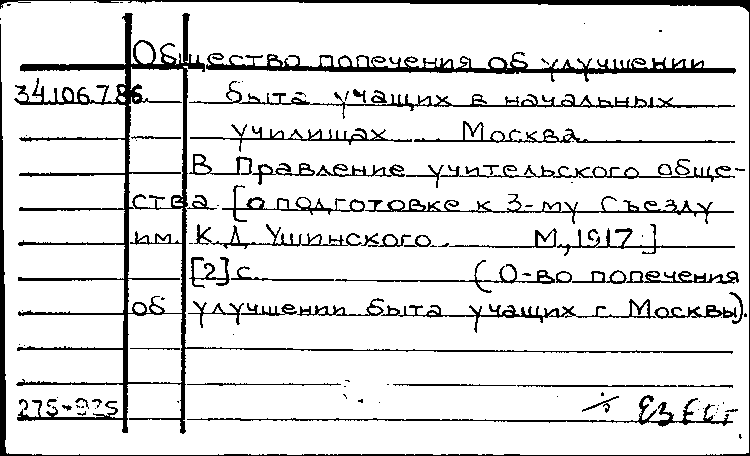 Общество попечения об улучшении
34.106.7.86. быта учащих в начальных
училищах Москва.
В Правление учительского обще-
ства. [о подготовке к 3-му Съезду
им. К.Д. Ушинского. М., 1917.]
[2] с. (О-во попечения
об улучшении быта учащих г. Москвы).